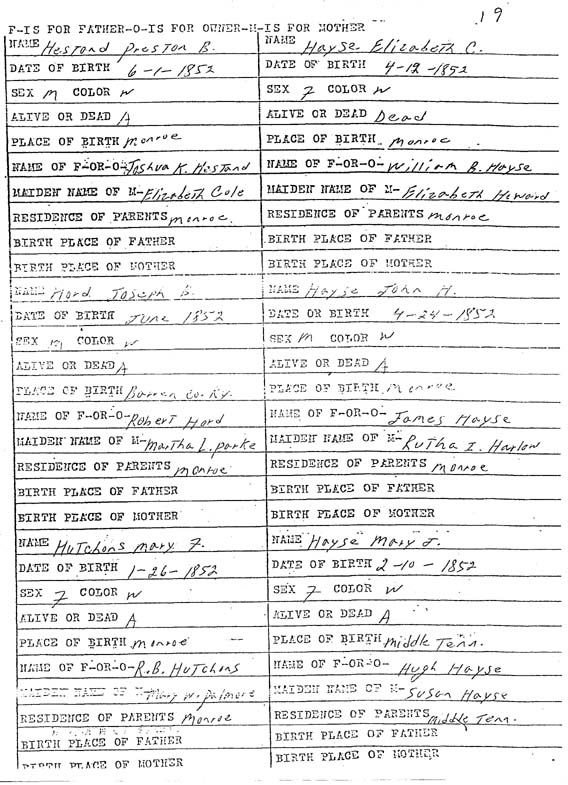 19
F-IS FOR FATHER-O-IS FOR OWNER-M-IS FOR MOTHER
NAME Hestand Preston B.
DATE OF BIRTH 6-1-1852
SEX M COLOR W
ALIVE OR DEAD A
PLACE OF BIRTH Monroe
NAME OF F-OR-O-Joshua K. Hestand
MAIDEN NAME OF M-Elizabeth Cole
RESIDENCE OF PARENTS Monroe.
BIRTH PLACE OF FATHER
BIRTH PLACE OF MOTHER
NAME Hord Joseph B.
DATE OF BIRTH June 1852
SEX M COLOR W
ALIVE OR DEAD A
PLACE OF BIRTH Barren Co. Ky.
NAME OF F-OR-O-Robert Hord
MAIDEN NAME OF M-Martha L. Parke
RESIDENCE OF PARENTS Monroe
BIRTH PLACE OF FATHER
BIRTH PLACE OF MOTHER
NAME Hutchons Mary F.
DATE OF BIRTH 1-26-1852
SEX F COLOR W
ALIVE OR DEAD A
PLACE OF BIRTH Monroe
NAME OF F-OR-O-R.B. Hutchons
MAIDEN NAME OF M-Mary W. Palmore
RESIDENCE OF PARENTS Monroe
BIRTH PLACE OF FATHER
BIRTH PLACE OF MOTHER
NAME Hayse Elizabeth C.
DATE OF BIRTH 4-12-1852
SEX F COLOR W
ALIVE OR DEAD Dead
PLACE OF BIRTH Monroe
NAME OF F-OR-O-William B. Hayse
MAIDEN NAME OF M-Elizabeth Howard
RESIDENCE OF PARENTS Monroe
BIRTH PLACE OF FATHER
BIRTH PLACE OF MOTHER
NAME Hayse John H.
DATE OR BIRTH 4-24-1852
SEX M COLOR W
ALIVE OR DEAD A
PLACE OF BIRTH Monroe
NAME OF F-OR-O-James Hayse
MAIDEN NAME OF M-Rutha I. Harlow
RESIDENCE OF PARENTS Monroe
BIRTH PLACE OF FATHER
BIRTH PLACE OF MOTHER
NAME Hayse Mary J.
DATE OF BIRTH 2-10-1852
SEX F COLOR W
ALIVE OR DEAD A
PLACE OF BIRTH Middle Tenn.
NAME OF F-OR-O- Hugh Hayse
MAIDEN NAME OF M-Susan Hayse
RESIDENCE OF PARENTS Middle Tenn.
BIRTH PLACE OF FATHER
BIRTH PLACE OF MOTHER